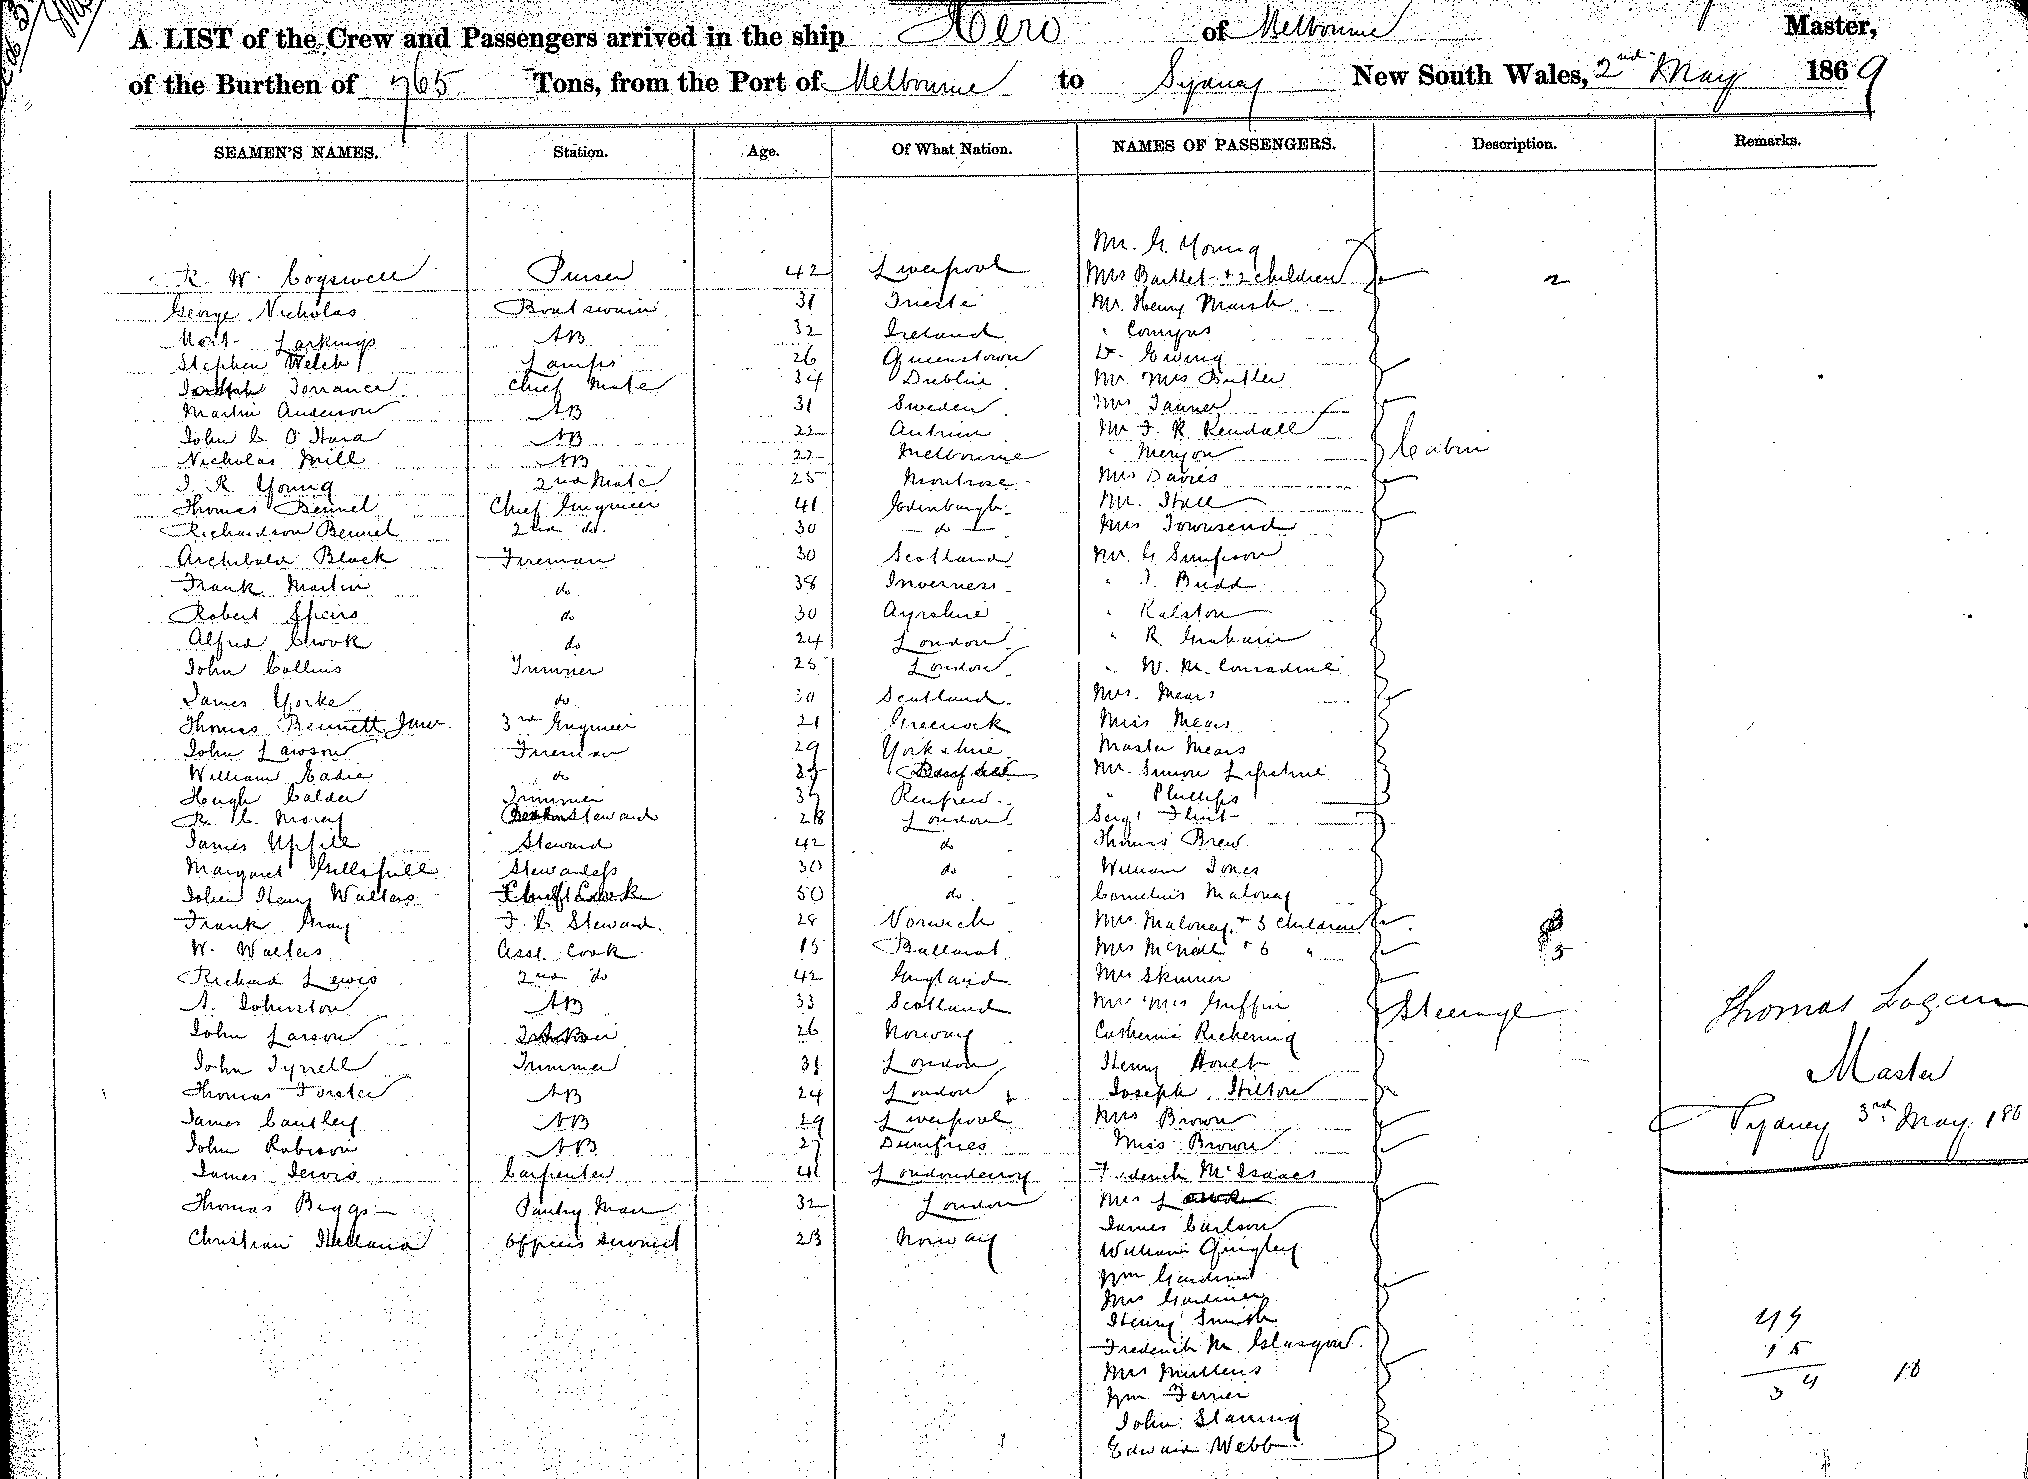 A LIST of the Crew and Passengers arrived in the ship Hero of Melbourne Master,
of the Burthen of 765 Tons, from the Port of Melbourne to Sydney New South Wales, 2nd May 1869
SEAMEN'S NAMES. Station. Age. Of What Nation. NAMES OF PASSENGERS. Description. Remarks.
Mr. G. Young
R. W. Cogswell Purser 42 Liverpool Mrs Bartlet + 2 children 2
George Nicholas Boatswain 31 Trieste Mr. Henry Marsh
Larkings AB 32 Ireland " Compas
Stephen Welch Lamps 26 Queenstown Ewing
Torrance Chief Mate 34 Dublin Mr Mrs Butler
Martin Anderson AB 31 Sweden Mrs Tanner
John C. O'Hara AB 22 Antrim Mr J. R. Kendall
Nicholas Mill AB 22 Melbourne " Meryon Cabin
J. R. Young 2nd Mate 25 Montrose Mrs Davies
Thomas Bennet Chief Engineer 41 Edinburgh Mr. Hall
Richardson Bennet 2nd do 30 do Mrs Townsend
Archibald Black Fireman 30 Scotland Mr. G Simpson
Frank Martin do 38 Inverness " J. Budd
Robert Speirs do 30 Ayrshire " Ralston
Alfred Crook do 24 London " R Graham
John Collins Trimmer 25 London " W. M. Conradine
James Yorke do 30 Scotland Mrs. Mears
Thomas Bennett Junr 3rd Engineer 21 Greenock Miss Mears
John Lawson Fireman 29 Yorkshire Master Mears
William Eadie do Mr. Simon
Hugh Calder Trimmer 37 Renfrew " Phillips
R. C. Steward 28 London Sergt Flint
James Upfill Steward 42 do Thomas Brew
Margaret Gillespill Stewardess 30 do William Jones
John Henry Walters Cook 50 do Cornelius Maloney
Frank Gray F. C. Steward. 28 Norwich Mrs Maloney + 3 children
W. Walters Asst. Cook 15 Ballarat Mrs McNeill + 6 " 3
Richard Lewis 2nd do 42 England Mrs Skinner
A. Johnston AB 33 Scotland Mr Mrs Griffin Steerage
John Larson 26 Norway Catherine Rickering
John Tyrrell Trimmer 31 London Henry
Thomas Forster AB 24 London Joseph Hilton
James Cantley AB 29 Liverpool Mrs Brown
John Robison AB 27 Dumfries Miss Brown
James Jervis Carpenter 41 Londonderry Frederick McIsaacs
Thomas Biggs Pantry Man 32 London Mrs
James Carlson
Christian Officers Servant 23 Norway William Quigley
Wm Gardiner
Mrs Gardiner
Henry Smith
Frederick M. Glasgow
Mrs Mullens
Wm Ferrier
John Slaming
Edward Webb
Thomas Logan
Master
Sydney 3rd May 186
49
15
34 10